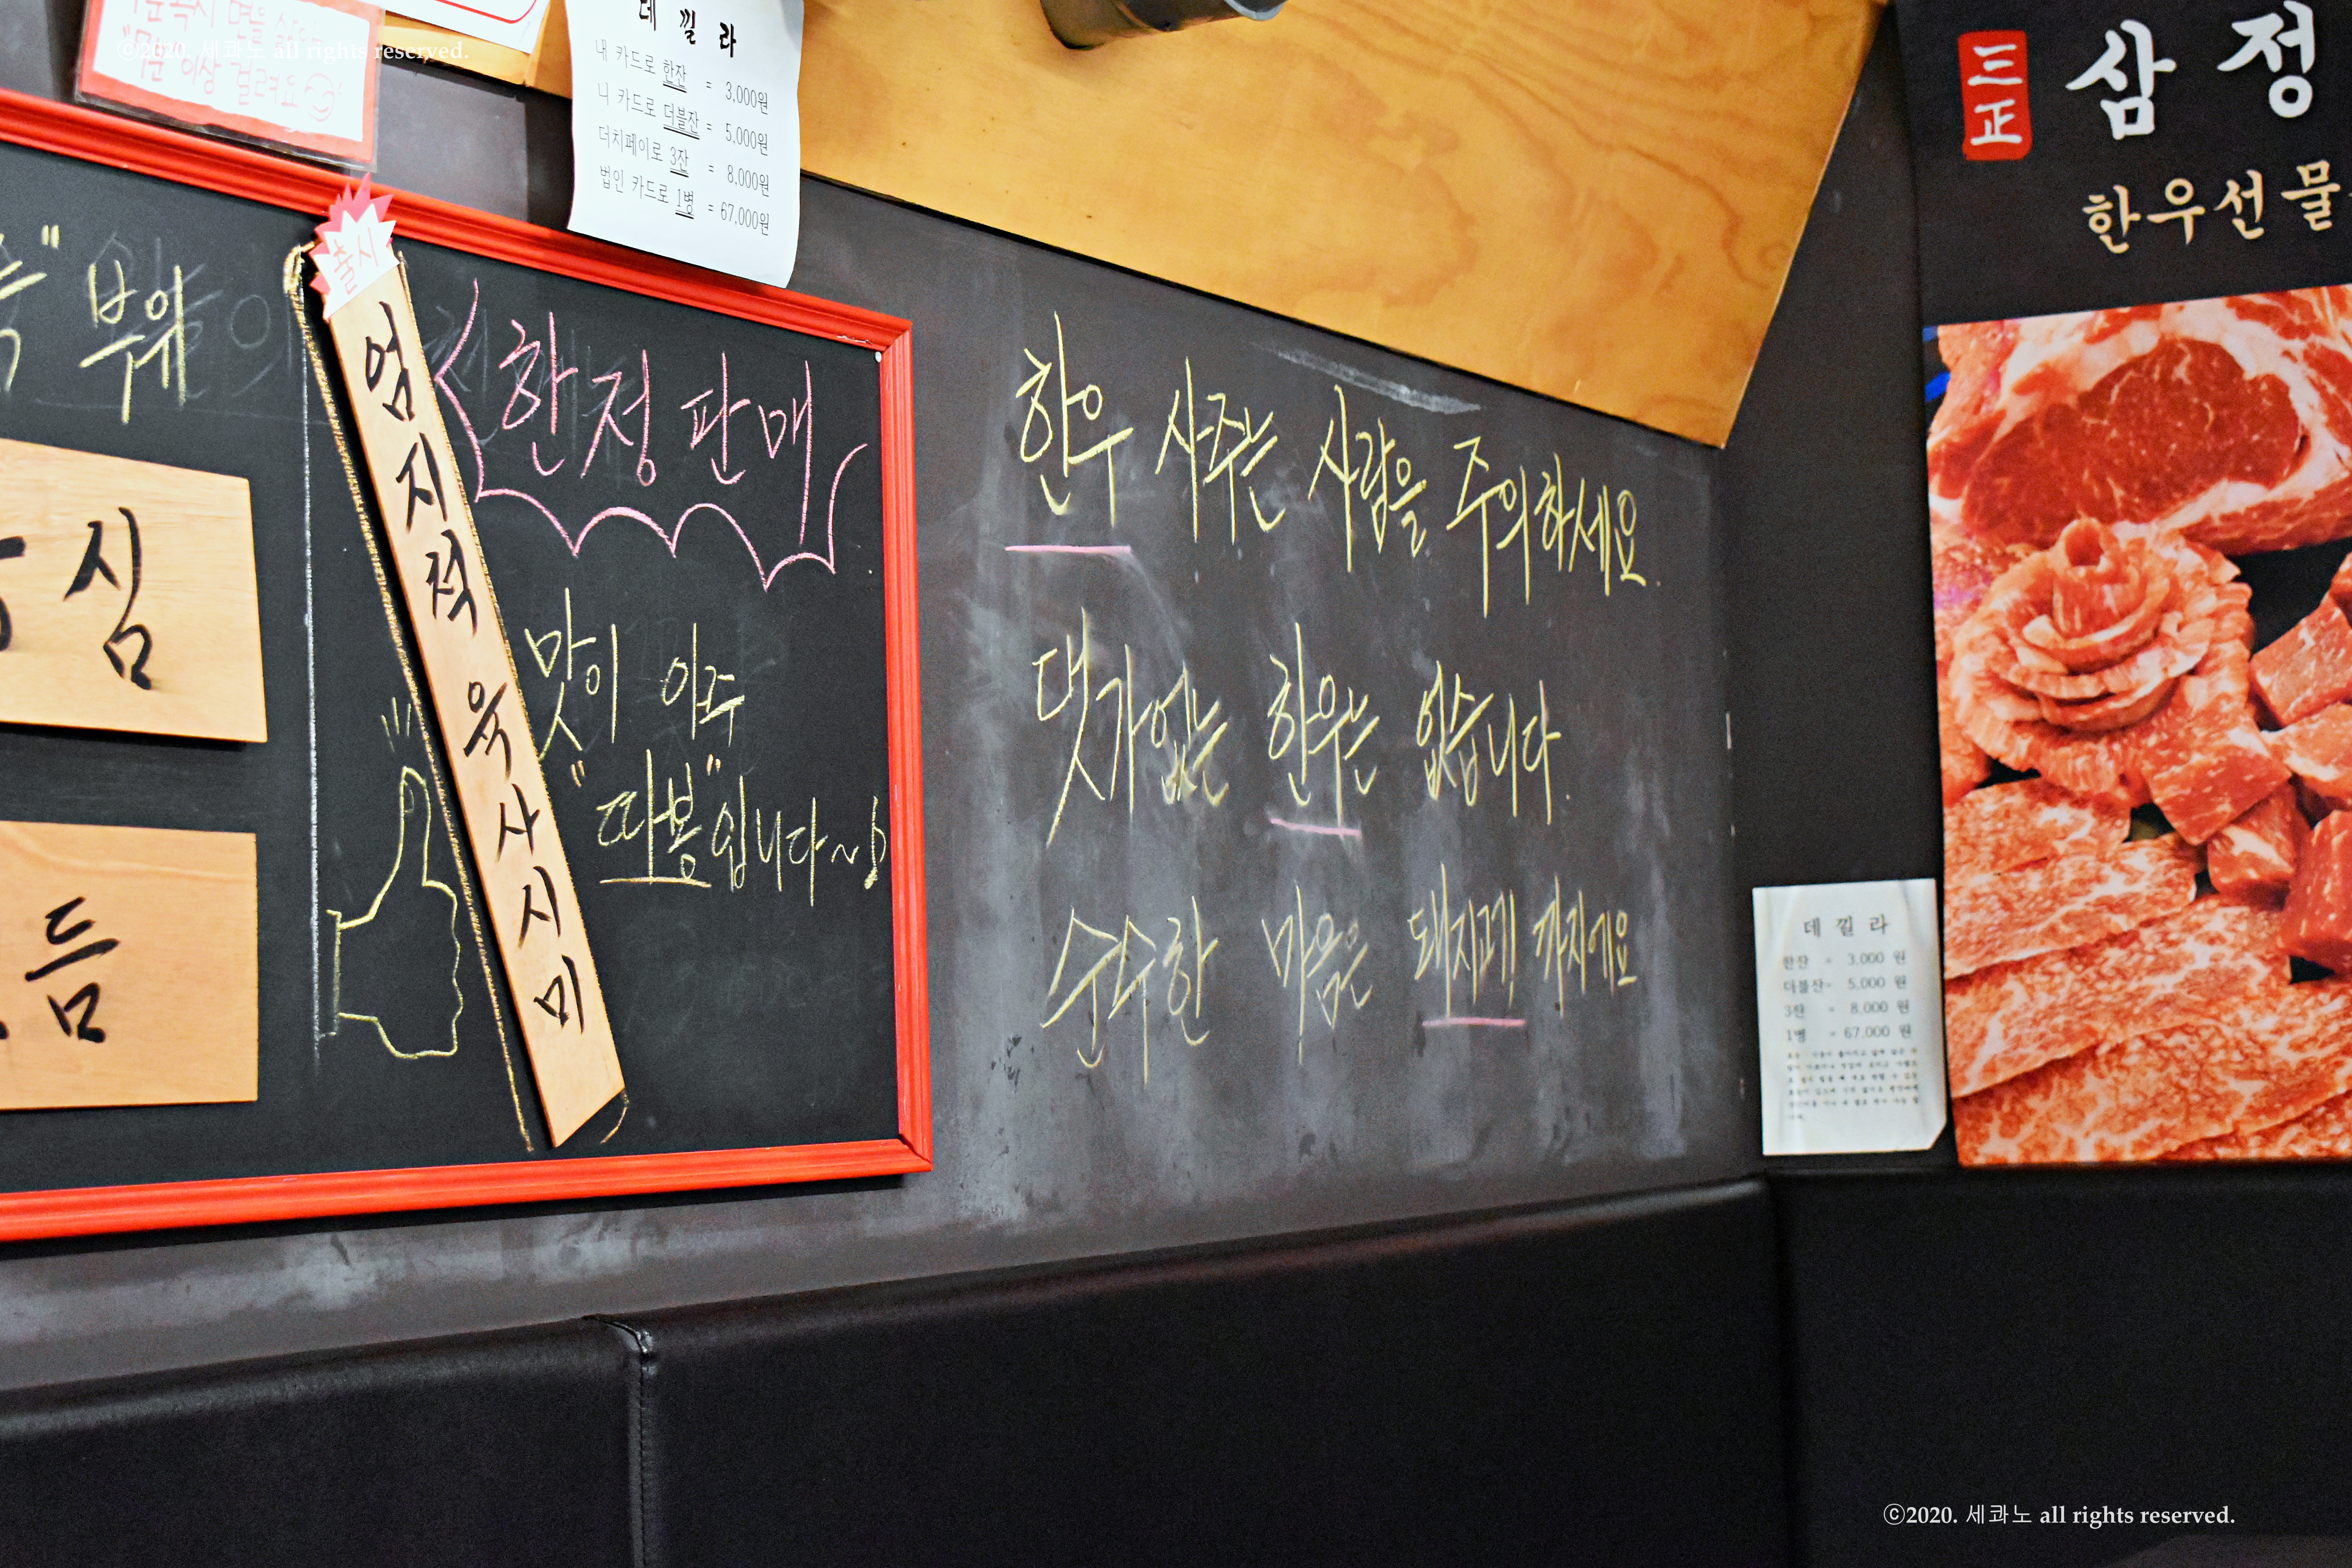 ©2020. 세콰노 all rights reserved.
이상 걸려요
데 낄 라
내 카드로 한잔 = 3,000원
니 카드로 더블잔 = 5,000원
더치페이로 3잔 = 8,000원
법인 카드로 1병 = 67,000원
三正
삼정
한우선물
부위
출시
엄지척 육사시미
한정판매
맛이 아주
"따봉"입니다~♪
심
듬
한우 사주는 사람을 주의하세요.
댓가없는 한우는 없습니다.
순수한 마음은 돼지고기! 까지에요
데 낄 라
한잔 = 3,000 원
더블잔 = 5,000 원
3잔 = 8,000 원
1병 = 67,000 원
©2020. 세콰노 all rights reserved.